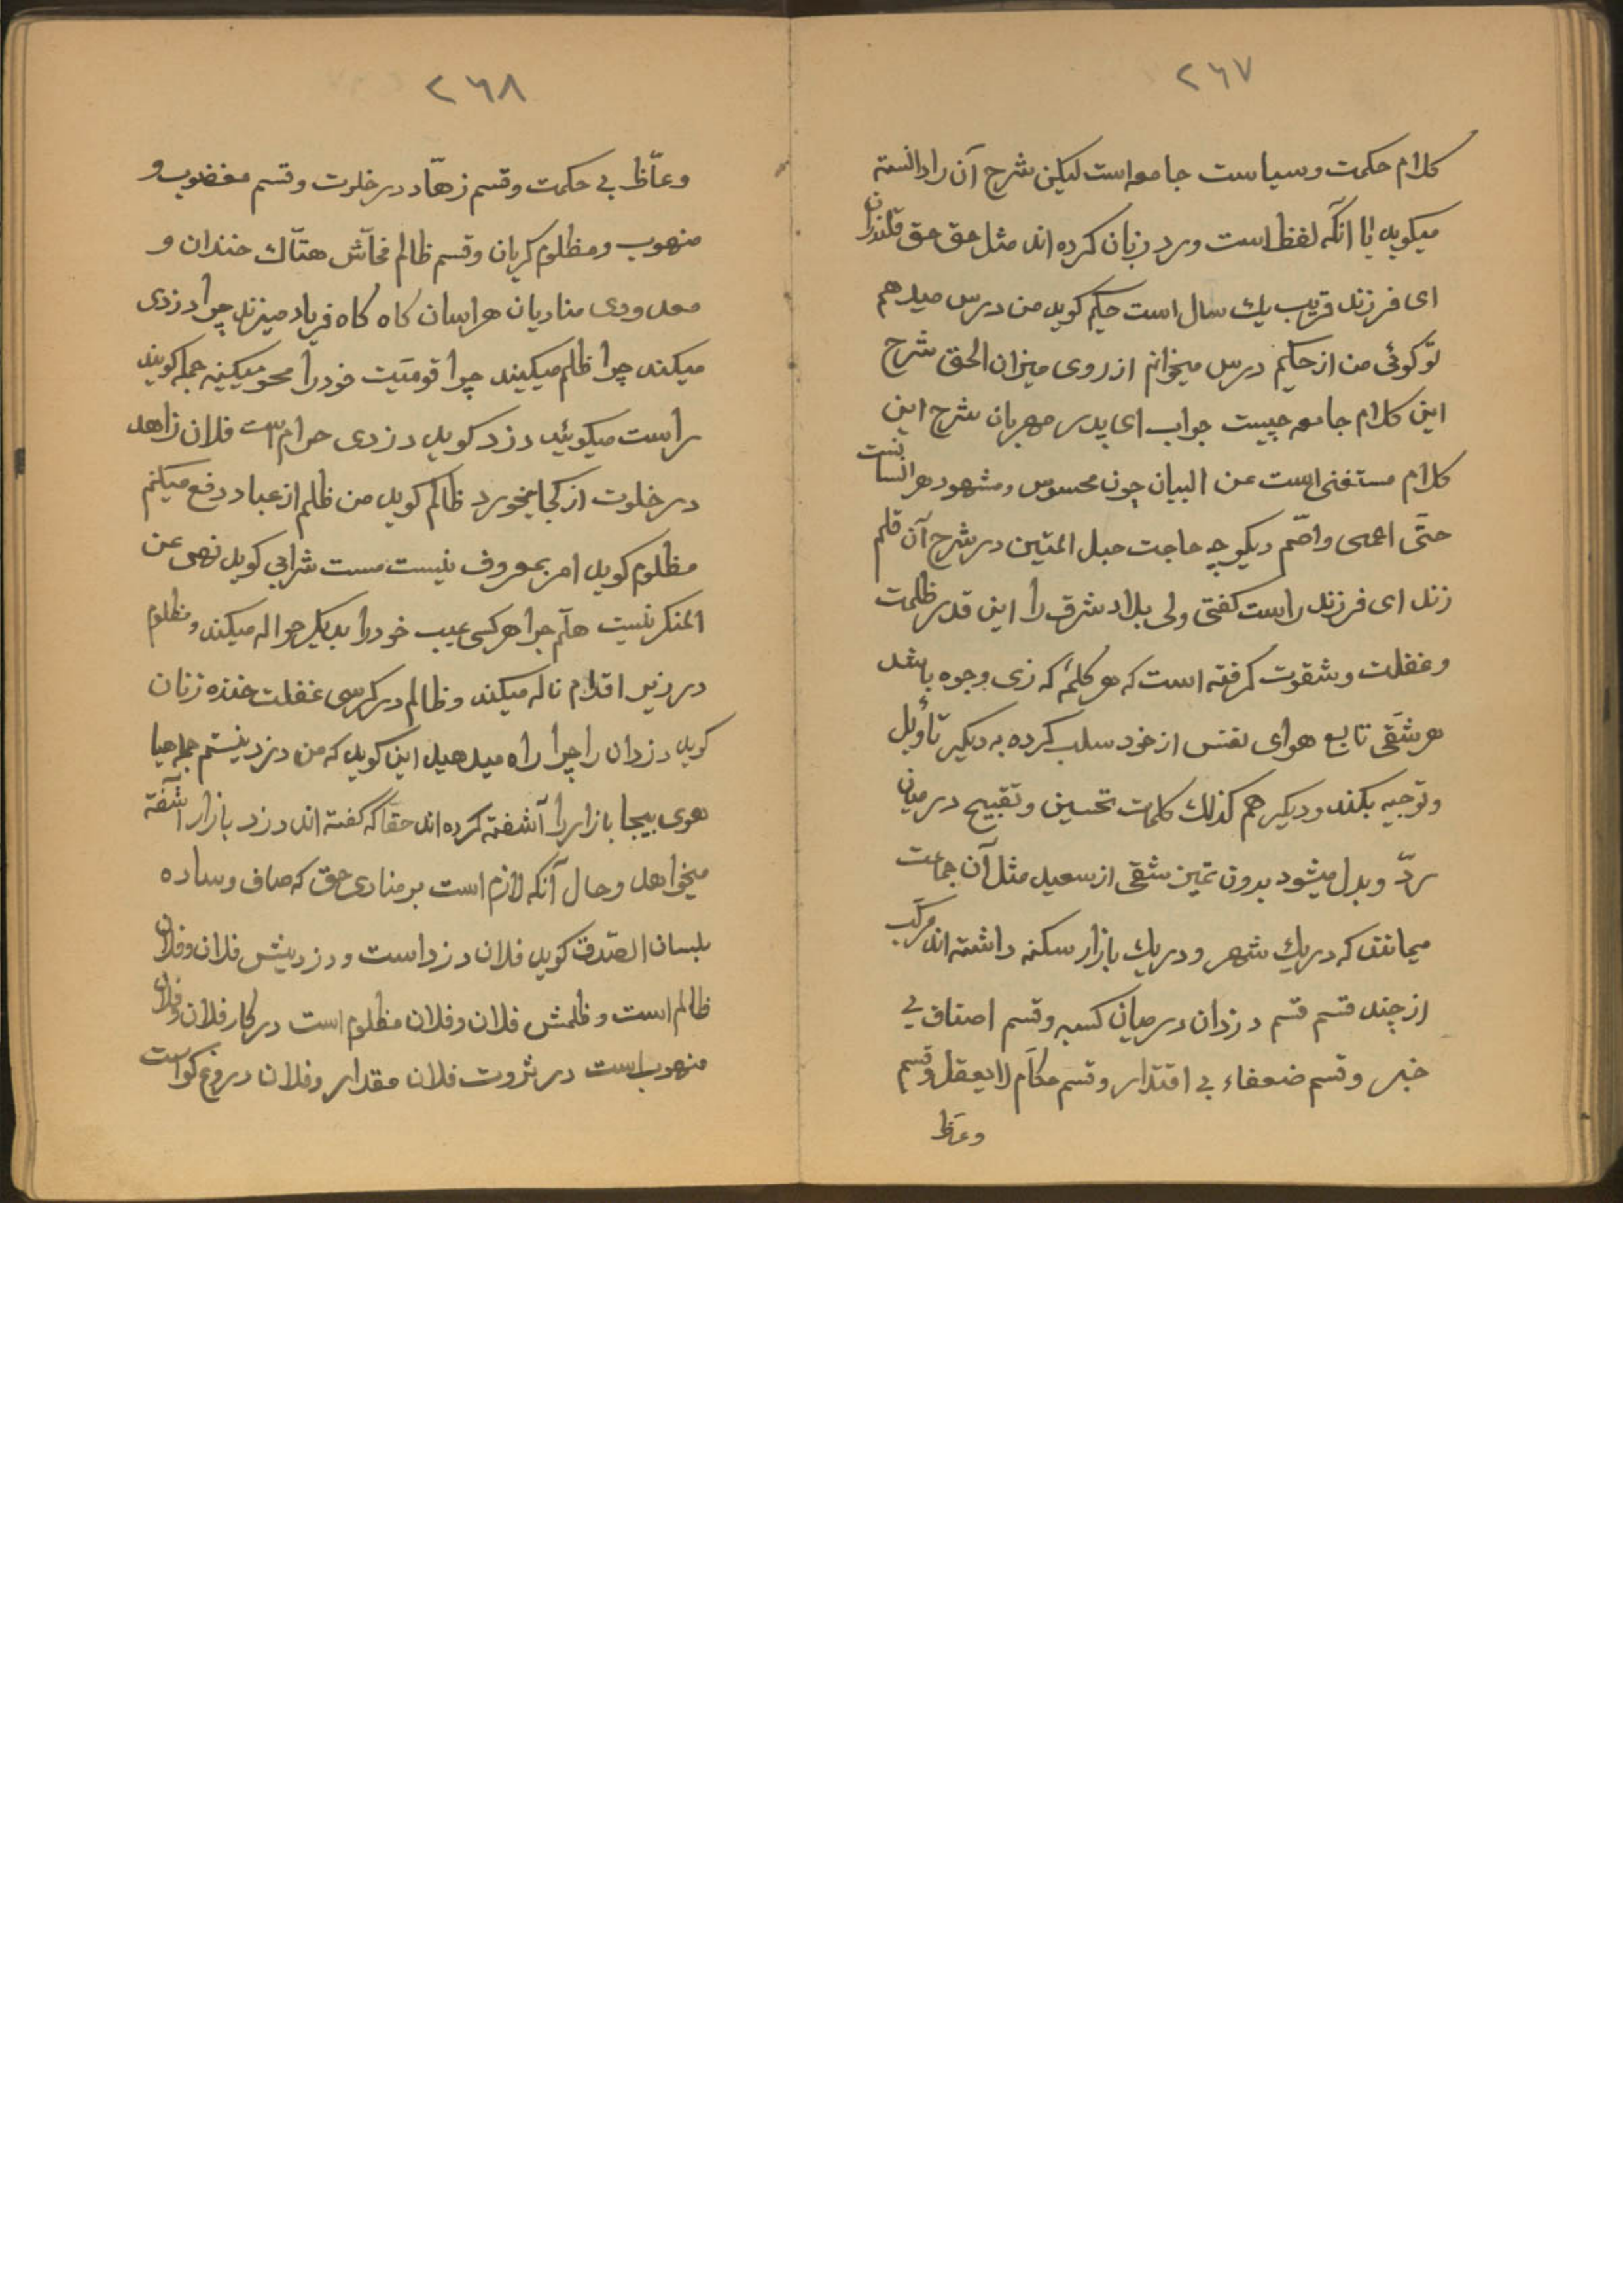 ٢٦٧
کلام حکمت و سیاست جامعه است لیکن شرح آن را دانسته
میکوید یا انکه لفظ است ورد زبان کرده اند مثل حق حق قلندران
ای فرزند قریب یك سال است حکیم کوید من درس میدهم
تو کوئی من از حکیم درس میخوانم از روی میزان الحق شرح
این کلام جامعه چیست جواب ای پدر مهربان شرح این
کلام مستغنی است عن البیان چون محسوس و مشهود هر انسانست
حتّی اعمی و اصّم دیکر چه حاجت حبل المتین در شرح آن قلم
زند ای فرزند راست کفتی ولی بلاد شرق را این قدر ظلمت
و غفلت و شقوت کرفته است که هر کلمهٔ که ذی وجوه باشد
هر شقی تابع هوای نفس از خود سلب کرده به دیکیر تأویل
و توجیه بکند و دیکیر هم کذلك کلمات تحسین و تقبیح در میان
ردّ و بدل میشود بدون تمیز شقی از سعید مثل آن جماعت
میمانند که در یك شهر و در یك بازار سکنه داشته اند مرکّب
از چند قسم قسم دزدان در میان کسبه و قسم اصناف بی
خبر و قسم ضعفاء بی اقتدار و قسم حکّام لا یعقل و قسم
وعّاظ
٢٦٨
وعّاظ بی حکمت و قسم زهّاد در خلوت و قسم مغضوب و
منهوب و مظلوم کریان و قسم ظالم فحّاش هتّاك خندان و
معدودی منادیان هراسان کاه کاه فریاد میزنند چرا دزدی
میکند چرا ظلم میکیند چرا قومیّت خود را محو میکینه جمله کویند
راست میکوئید دزد کوید دزدی حرام است فلان زاهد
در خلوت از کجا میخورد ظالم کوید من ظلم از عباد دفع میکنم
مظلوم کوید امر بمعروف نیست مست شرابی کوید نهی عن
المنکر نیست هلّم جرا هر کسی عیب خود را بدیکیر حواله میکند و مظلوم
در زیر اقدام ناله میکند و ظالم در کرسی غفلت خنده زنان
کوید دزدان را چرا راه میدهید این کوید که من دزد نیستم جمله هیا
هوی بیجا بازار را آشفته کرده اند حقا که گفته اند دزد بازار آشفته
میخواهد و حال آنکه لازم است بر منادی حق که صاف و ساده
بلسان الصّدق کوید فلان دزد است و دزدیش فلان و فلان
ظالم است و ظلمش فلان و فلان مظلوم است در کار فلان و فلان
منهوب است در ثروت فلان مقدار و فلان دروغ کو است